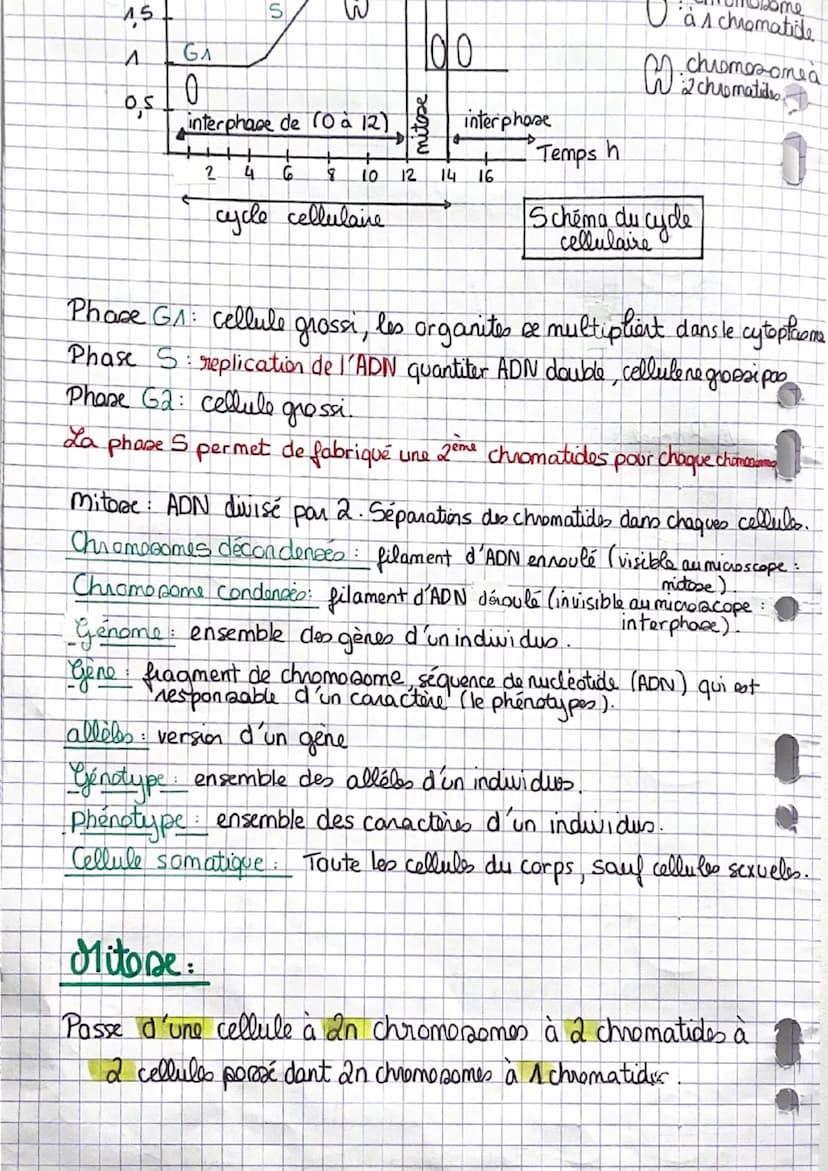 1,5
S
à 1 chromatide
1
G1
: chromosome à
2 chromatides
0,5
interphase de (0 à 12)
mitose
interphase
Temps h
2 4 6 8 10 12 14 16
cycle cellulaire
Schéma du cycle
cellulaire
Phase G1: cellule grossi, les organites se multipliant dans le cytoplasme
Phase S : replication de l'ADN quantiter ADN double, cellule ne grossi pas
Phase G2: cellule grossi.
La phase S permet de fabriqué une 2ème chromatides pour chaque chromosome
Mitose : ADN divisé par 2. Séparations des chromatides dans chaques cellules.
Chromosomes décondensés : filament d'ADN enroulé (visible au microscope :
mitose)
Chromosome condensés: filament d'ADN déroulé (invisible au microscope :
interphase).
Génome : ensemble des gènes d'un individus.
Gène : fragment de chromosome, séquence de nucléotide (ADN) qui est
responsable d'un caractère (le phénotypes).
allèles : version d'un gène
Génotype : ensemble des allèles d'un individus.
phénotype : ensemble des caractères d'un individus.
Cellule somatique : Toute les cellules du corps, sauf cellules sexueles.
Mitose :
Passe d'une cellule à 2n chromosomes à 2 chromatides à
2 cellules possé dant 2n chromosomes à 1 chromatides.